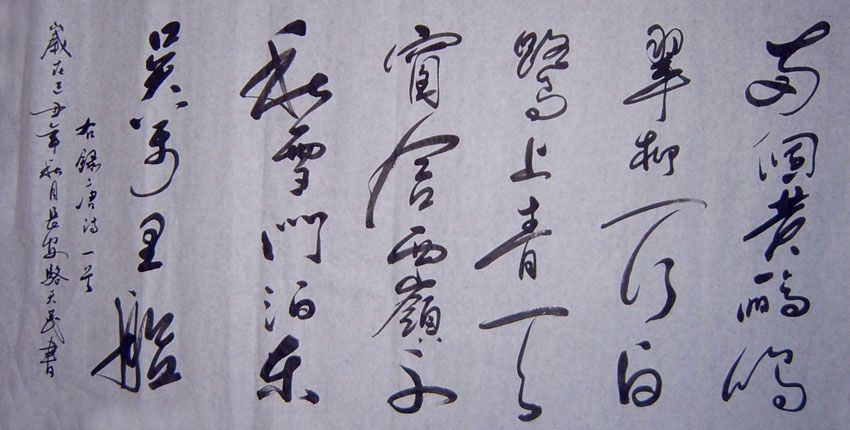 两個黄鸝鳴
翠柳一行白
鷺上青天
窗含西嶺千
秋雪門泊东
吴萬里船
右録唐诗一首
歲在己丑年秋月長安路天民書